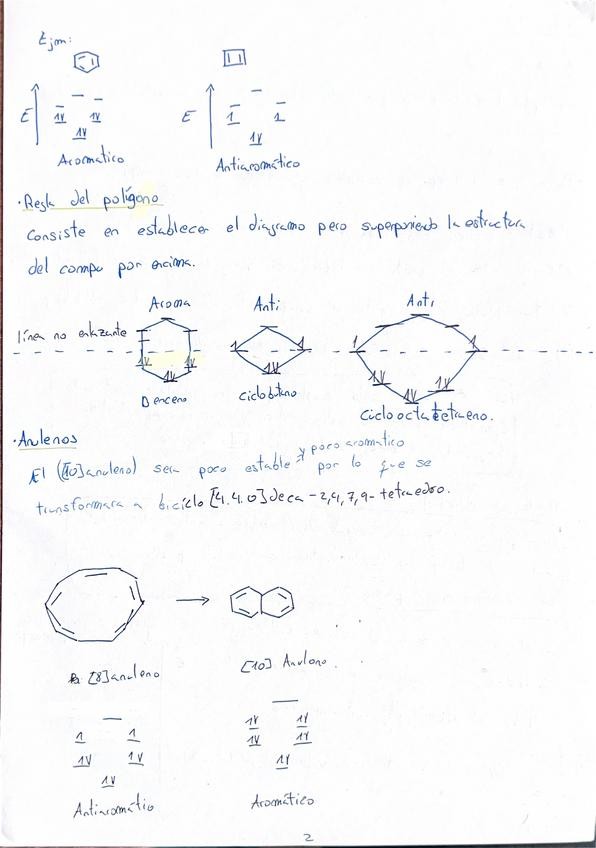 Ejm:
E
E
Aromático
Antiaromático
·Regla del polígono
Consiste en establecer el diagrama pero superponiendo la estructura
del compu por encima.
Aroma
Anti
Anti
línea no enlazante
Benceno
Ciclobuteno
Ciclooctatetraeno.
·Anulenos
El ([10]anuleno) sera poco estable y poco aromatico por lo que se
transformara a biciclo [4.4.0]deca-2,4,7,9-tetraedro.
[8]anuleno
[10] Anuleno.
Antiaromático
Aromático
2